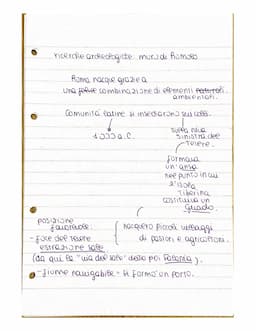 ricerche archeologiche: muro di Romolo
Roma nacque grazie a
una felice combinazione di elementi naturali.
ambientali.
Comunità latine si insediarono sui colli.
1000 a.C.
sulla riva
sinistra del
Tevere.
formava
un'ansa
nel punto in cui
l'isola
Tiberina
costituiva un
Guado.
posizione
favorevole:
- foce del Tevere
estrazione sale
(da qui la "via del sale" detta poi Salaria).
- fiume navigabile = si formò un porto.
nacquero piccoli villaggi
di pastori e agricoltori.